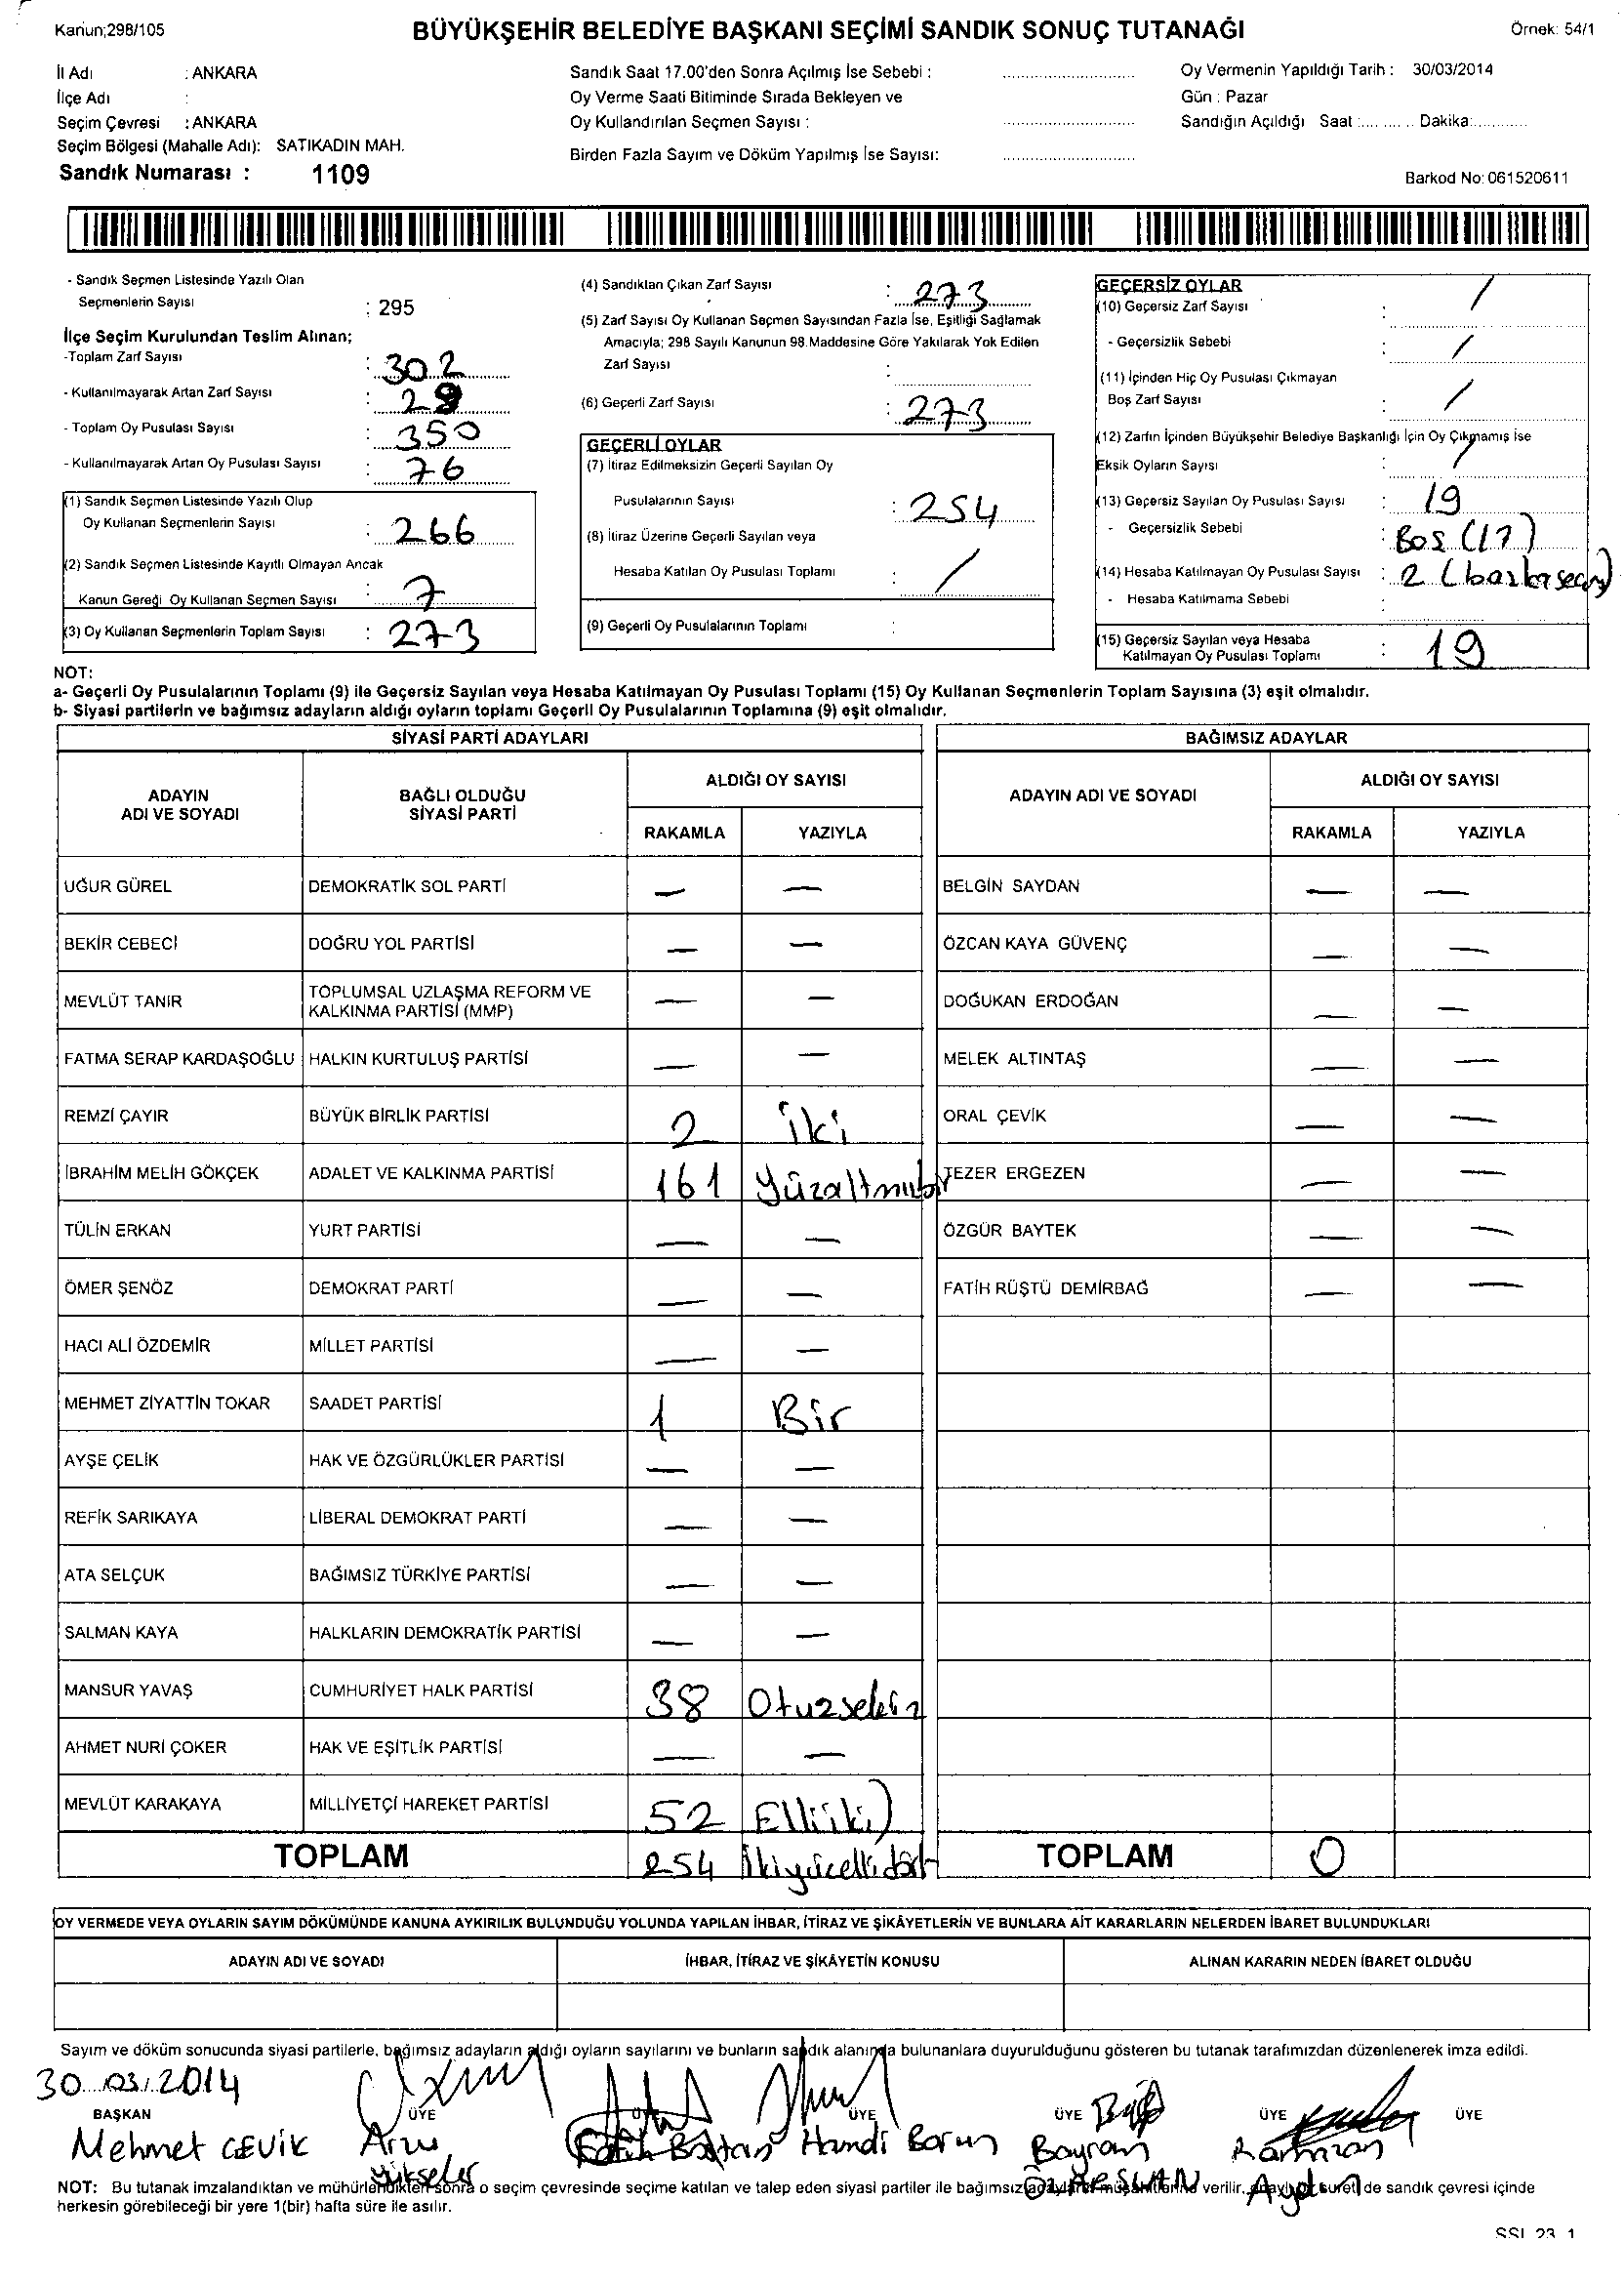 Kanun;298/105
BÜYÜKŞEHİR BELEDİYE BAŞKANI SEÇİMİ SANDIK SONUÇ TUTANAĞI
Örnek: 54/1
İl Adı : ANKARA
İlçe Adı :
Seçim Çevresi : ANKARA
Seçim Bölgesi (Mahalle Adı): SATIKADIN MAH.
Sandık Numarası : 1109
Sandık Saat 17.00'den Sonra Açılmış İse Sebebi :
Oy Verme Saati Bitiminde Sırada Bekleyen ve
Oy Kullandırılan Seçmen Sayısı :
Birden Fazla Sayım ve Döküm Yapılmış İse Sayısı:
Oy Vermenin Yapıldığı Tarih : 30/03/2014
Gün : Pazar
Sandığın Açıldığı Saat :......... Dakika:............
Barkod No: 061520611
- Sandık Seçmen Listesinde Yazılı Olan
Seçmenlerin Sayısı : 295
İlçe Seçim Kurulundan Teslim Alınan;
-Toplam Zarf Sayısı : 302
- Kullanılmayarak Artan Zarf Sayısı : 29
- Toplam Oy Pusulası Sayısı : 350
- Kullanılmayarak Artan Oy Pusulası Sayısı : 76
(1) Sandık Seçmen Listesinde Yazılı Olup
Oy Kullanan Seçmenlerin Sayısı : 266
(2) Sandık Seçmen Listesinde Kayıtlı Olmayan Ancak
Kanun Gereği Oy Kullanan Seçmen Sayısı : 7
(3) Oy Kullanan Seçmenlerin Toplam Sayısı : 273
(4) Sandıktan Çıkan Zarf Sayısı : 273
(5) Zarf Sayısı Oy Kullanan Seçmen Sayısından Fazla İse, Eşitliği Sağlamak
Amacıyla; 298 Sayılı Kanunun 98.Maddesine Göre Yakılarak Yok Edilen
Zarf Sayısı :
(6) Geçerli Zarf Sayısı : 273
GEÇERLİ OYLAR
(7) İtiraz Edilmeksizin Geçerli Sayılan Oy
Pusulalarının Sayısı : 254
(8) İtiraz Üzerine Geçerli Sayılan veya
Hesaba Katılan Oy Pusulası Toplamı : /
(9) Geçerli Oy Pusulalarının Toplamı :
GEÇERSİZ OYLAR
(10) Geçersiz Zarf Sayısı : /
- Geçersizlik Sebebi : /
(11) İçinden Hiç Oy Pusulası Çıkmayan
Boş Zarf Sayısı : /
(12) Zarfın İçinden Büyükşehir Belediye Başkanlığı İçin Oy Çıkmamış İse
Eksik Oyların Sayısı : /
(13) Geçersiz Sayılan Oy Pusulası Sayısı : 19
- Geçersizlik Sebebi : Boş (17)
(14) Hesaba Katılmayan Oy Pusulası Sayısı : 2
- Hesaba Katılmama Sebebi :
(15) Geçersiz Sayılan veya Hesaba
Katılmayan Oy Pusulası Toplamı : 19
NOT:
a- Geçerli Oy Pusulalarının Toplamı (9) ile Geçersiz Sayılan veya Hesaba Katılmayan Oy Pusulası Toplamı (15) Oy Kullanan Seçmenlerin Toplam Sayısına (3) eşit olmalıdır.
b- Siyasi partilerin ve bağımsız adayların aldığı oyların toplamı Geçerli Oy Pusulalarının Toplamına (9) eşit olmalıdır.
SİYASİ PARTİ ADAYLARI
ADAYIN ADI VE SOYADI BAĞLI OLDUĞU SİYASİ PARTİ ALDIĞI OY SAYISI
RAKAMLA YAZIYLA
UĞUR GÜREL DEMOKRATİK SOL PARTİ — —
BEKİR CEBECİ DOĞRU YOL PARTİSİ — —
MEVLÜT TANIR TOPLUMSAL UZLAŞMA REFORM VE KALKINMA PARTİSİ (MMP) — —
FATMA SERAP KARDAŞOĞLU HALKIN KURTULUŞ PARTİSİ — —
REMZİ ÇAYIR BÜYÜK BİRLİK PARTİSİ 2 İki
İBRAHİM MELİH GÖKÇEK ADALET VE KALKINMA PARTİSİ 161 Yüzaltmışbir
TÜLİN ERKAN YURT PARTİSİ — —
ÖMER ŞENÖZ DEMOKRAT PARTİ — —
HACI ALİ ÖZDEMİR MİLLET PARTİSİ — —
MEHMET ZİYATTİN TOKAR SAADET PARTİSİ 1 Bir
AYŞE ÇELİK HAK VE ÖZGÜRLÜKLER PARTİSİ — —
REFİK SARIKAYA LİBERAL DEMOKRAT PARTİ — —
ATA SELÇUK BAĞIMSIZ TÜRKİYE PARTİSİ — —
SALMAN KAYA HALKLARIN DEMOKRATİK PARTİSİ — —
MANSUR YAVAŞ CUMHURİYET HALK PARTİSİ 38 Otuzsekiz
AHMET NURİ ÇOKER HAK VE EŞİTLİK PARTİSİ — —
MEVLÜT KARAKAYA MİLLİYETÇİ HAREKET PARTİSİ 52 Elliiki
TOPLAM 254 İkiyüzellidört
BAĞIMSIZ ADAYLAR
ADAYIN ADI VE SOYADI ALDIĞI OY SAYISI
RAKAMLA YAZIYLA
BELGİN SAYDAN — —
ÖZCAN KAYA GÜVENÇ — —
DOĞUKAN ERDOĞAN — —
MELEK ALTINTAŞ — —
ORAL ÇEVİK — —
TEZER ERGEZEN — —
ÖZGÜR BAYTEK — —
FATİH RÜŞTÜ DEMİRBAĞ — —
TOPLAM 0
OY VERMEDE VEYA OYLARIN SAYIM DÖKÜMÜNDE KANUNA AYKIRILIK BULUNDUĞU YOLUNDA YAPILAN İHBAR, İTİRAZ VE ŞİKÂYETLERİN VE BUNLARA AİT KARARLARIN NELERDEN İBARET BULUNDUKLARI
ADAYIN ADI VE SOYADI İHBAR, İTİRAZ VE ŞİKÂYETİN KONUSU ALINAN KARARIN NEDEN İBARET OLDUĞU
Sayım ve döküm sonucunda siyasi partilerle, bağımsız adayların aldığı oyların sayılarını ve bunların sandık alanında bulunanlara duyurulduğunu gösteren bu tutanak tarafımızdan düzenlenerek imza edildi.
30.03.2014
BAŞKAN ÜYE ÜYE ÜYE ÜYE ÜYE ÜYE
Mehmet ÇEVİK Arzu Yükseler Fatih Hamdi Bayram ÖZARSLAN Ramazan Aydın
NOT: Bu tutanak imzalandıktan ve mühürlendikten sonra o seçim çevresinde seçime katılan ve talep eden siyasi partiler ile bağımsız adayların müşahitlerine verilir. onaylı bir sureti de sandık çevresi içinde
herkesin görebileceği bir yere 1(bir) hafta süre ile asılır.